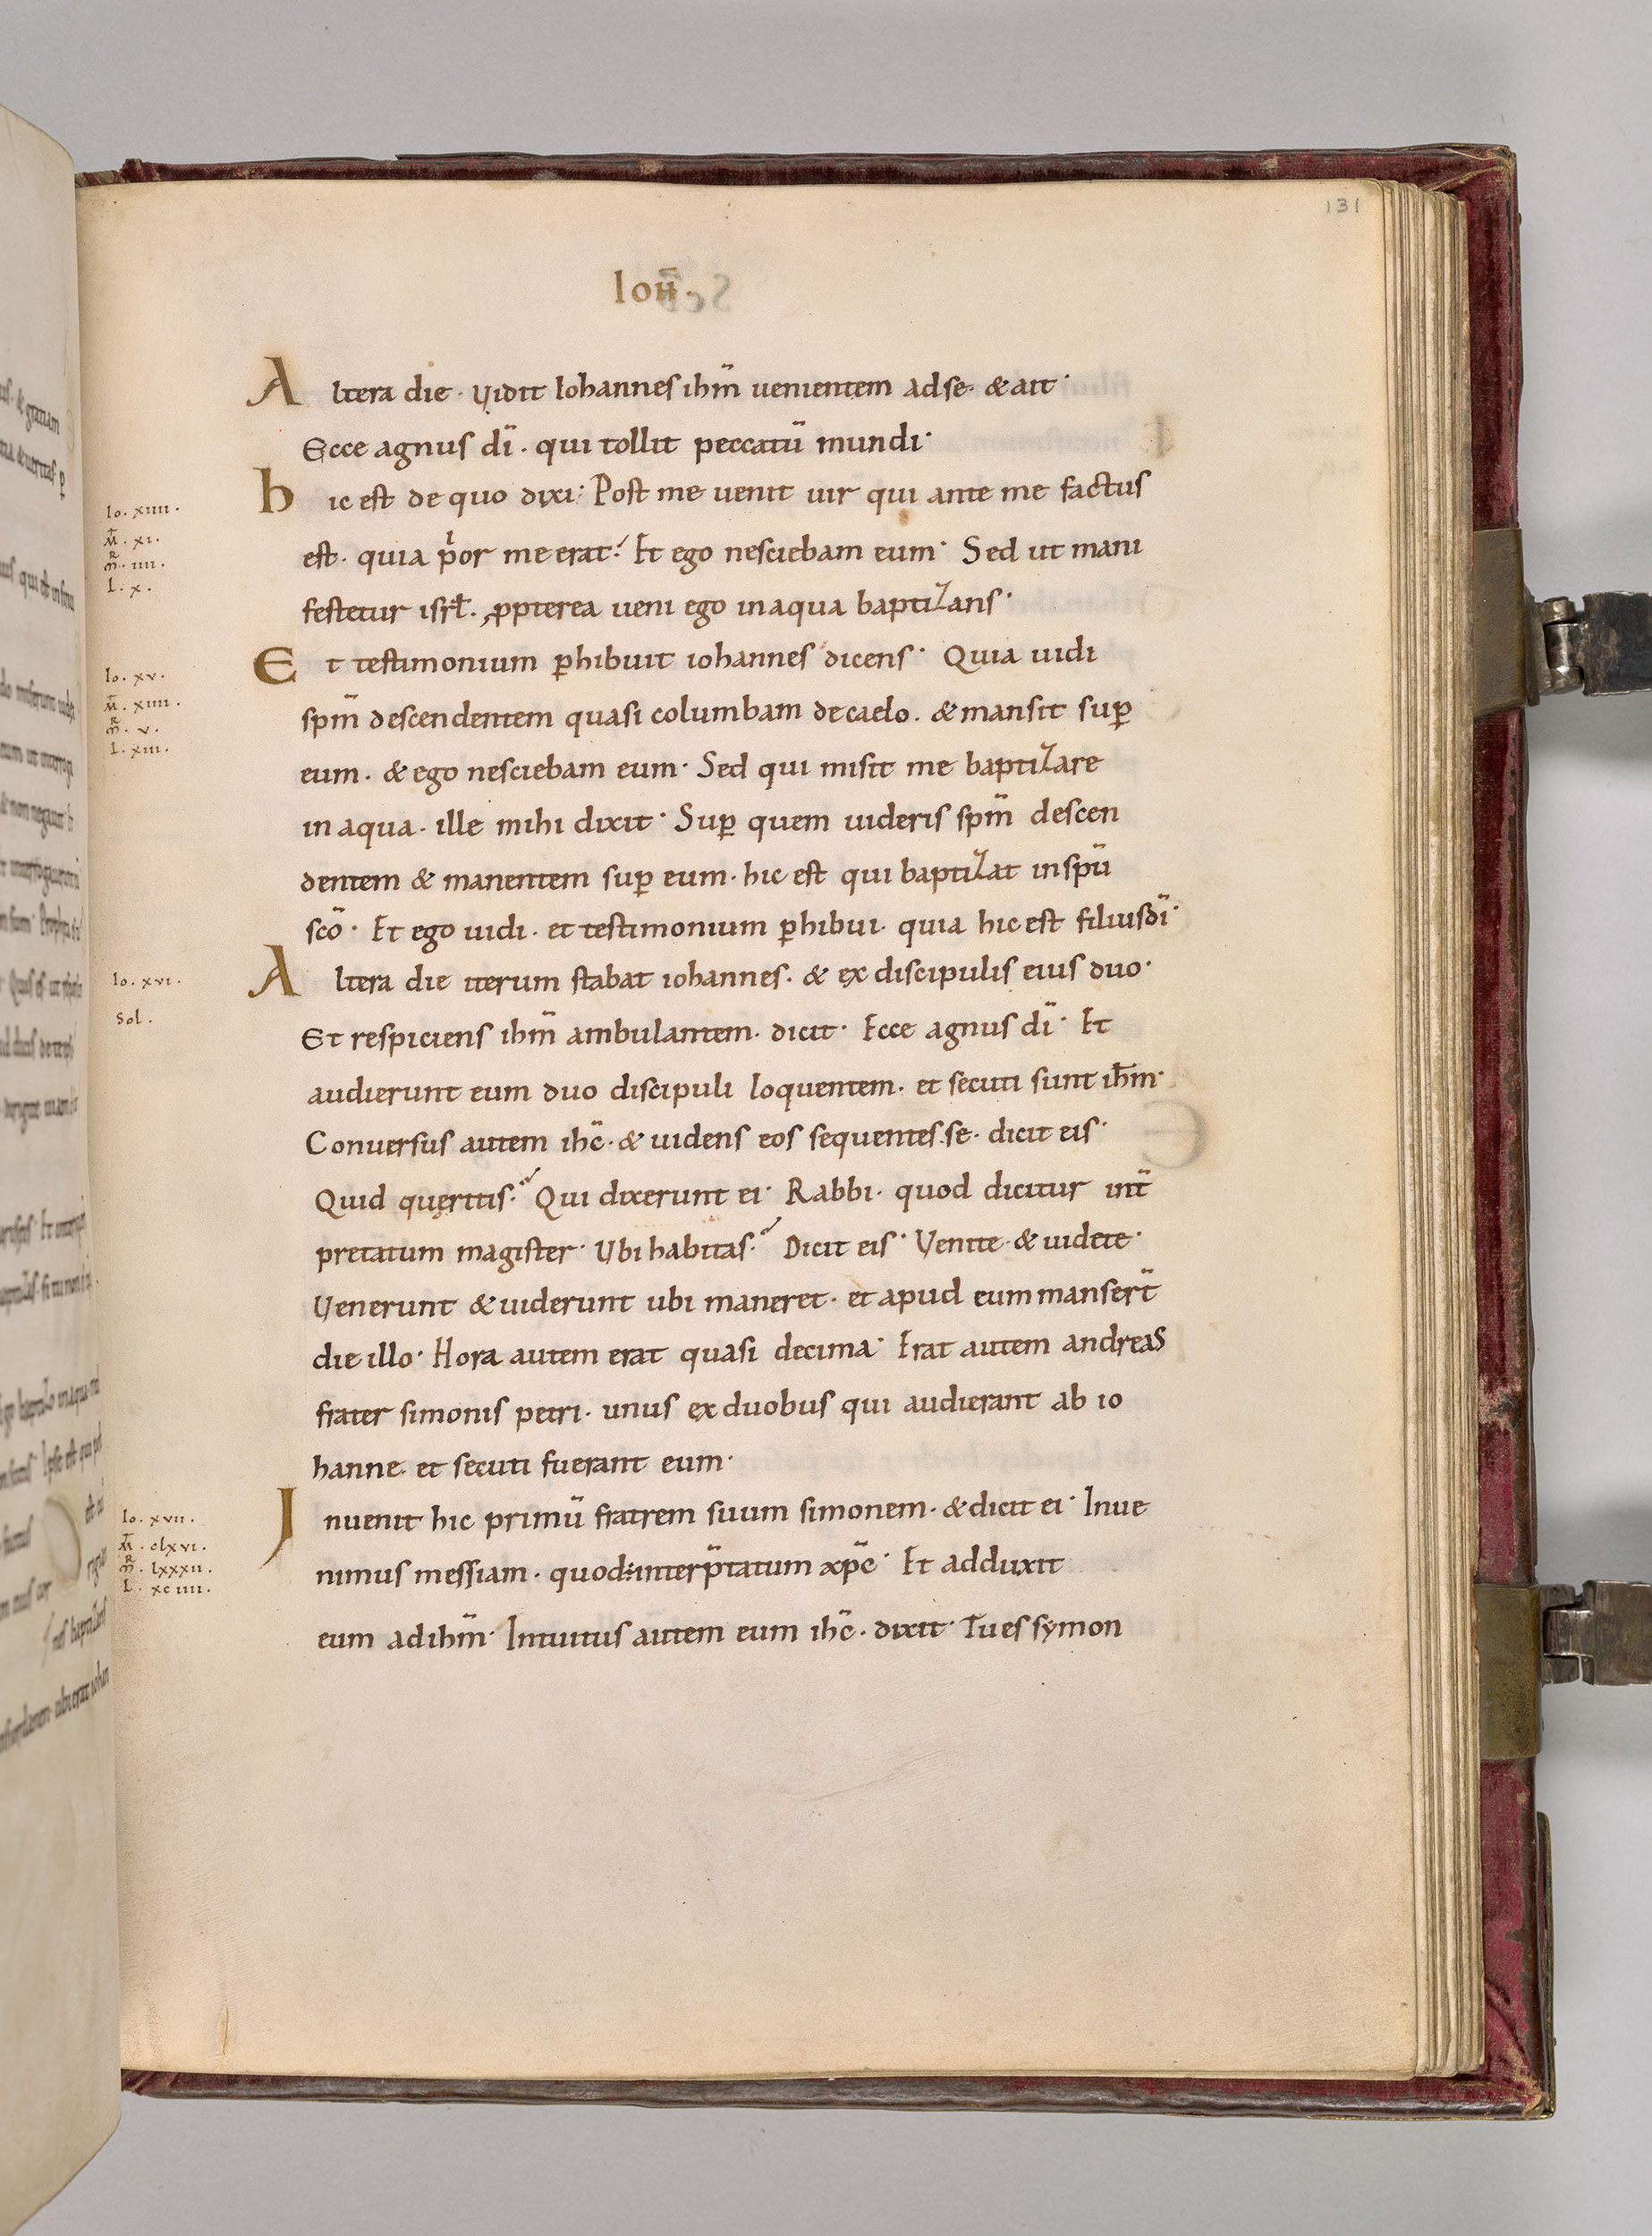 131
Ioħ.
Altera die · Vidit Iohannes ihm̄ uenientem adse · & ait ·
Ecce agnus dī · qui tollit peccatū mundi ·
hic est de quo dixi · Post me uenit uir qui ante me factus
Io. xiiii.
M̄. xi.
m̄. iiii.
L. x.
est · quia p̄or me erat · Et ego nesciebam eum · Sed ut mani
festetur isrł · ꝓpterea ueni ego inaqua baptizans ·
Et testimonium ꝑhibuit iohannes dicens · Quia uidi
Io. xv.
M̄. xiiii.
m̄. v.
L. xiii.
spm̄ descendentem quasi columbam de caelo · & mansit suꝑ
eum · & ego nesciebam eum · Sed qui misit me baptizare
in aqua · ille mihi dixit · Suꝑ quem uideris spm̄ descen
dentem & manentem suꝑ eum · hic est qui baptizat inspū
scō · Et ego uidi · et testimonium ꝑhibui · quia hic est filiusdī ·
Altera die iterum stabat iohannes · & ex discipulis eius duo ·
Io. xvi.
Sol.
Et respiciens ihm̄ ambulantem · dicit · Ecce agnus dī · Et
audierunt eum duo discipuli loquentem · et secuti sunt ihm̄ ·
Conuersus autem ihc̄ · & uidens eos sequentes.se · dicit eis ·
Quid quęritis · Qui dixerunt ei · Rabbi · quod dicitur int̄
pretatum magister · Vbi habitas · Dicit eis · Venite · & uidete ·
Venerunt & uiderunt ubi maneret · et apud eum manser̄t
die illo · Hora autem erat quasi decima · Erat autem andreas
frater simonis petri · unus ex duobus qui audierant ab io
hanne · et secuti fuerant eum ·
Inuenit hic primū fratrem suum simonem · & dicit ei · Inue
Io. xvii.
M̄. clxvi.
m̄. lxxxii.
L. xciiii.
nimus messiam · quod÷interp̄tatum xpc̄ · Et adduxit
eum ad ihm̄ · Intuitus autem eum ihc̄ · dixit · Tu es symon